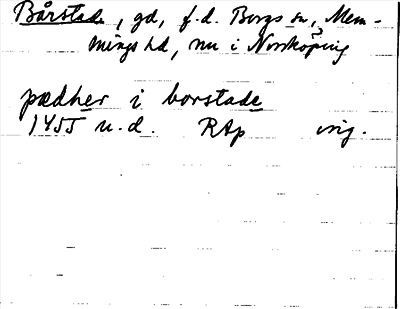 Bårstade, gd, f.d. Borgs sn, Mem-
mings hd, nu i Norrköping
pædher i borstade
1455 u.d. RAp orig.